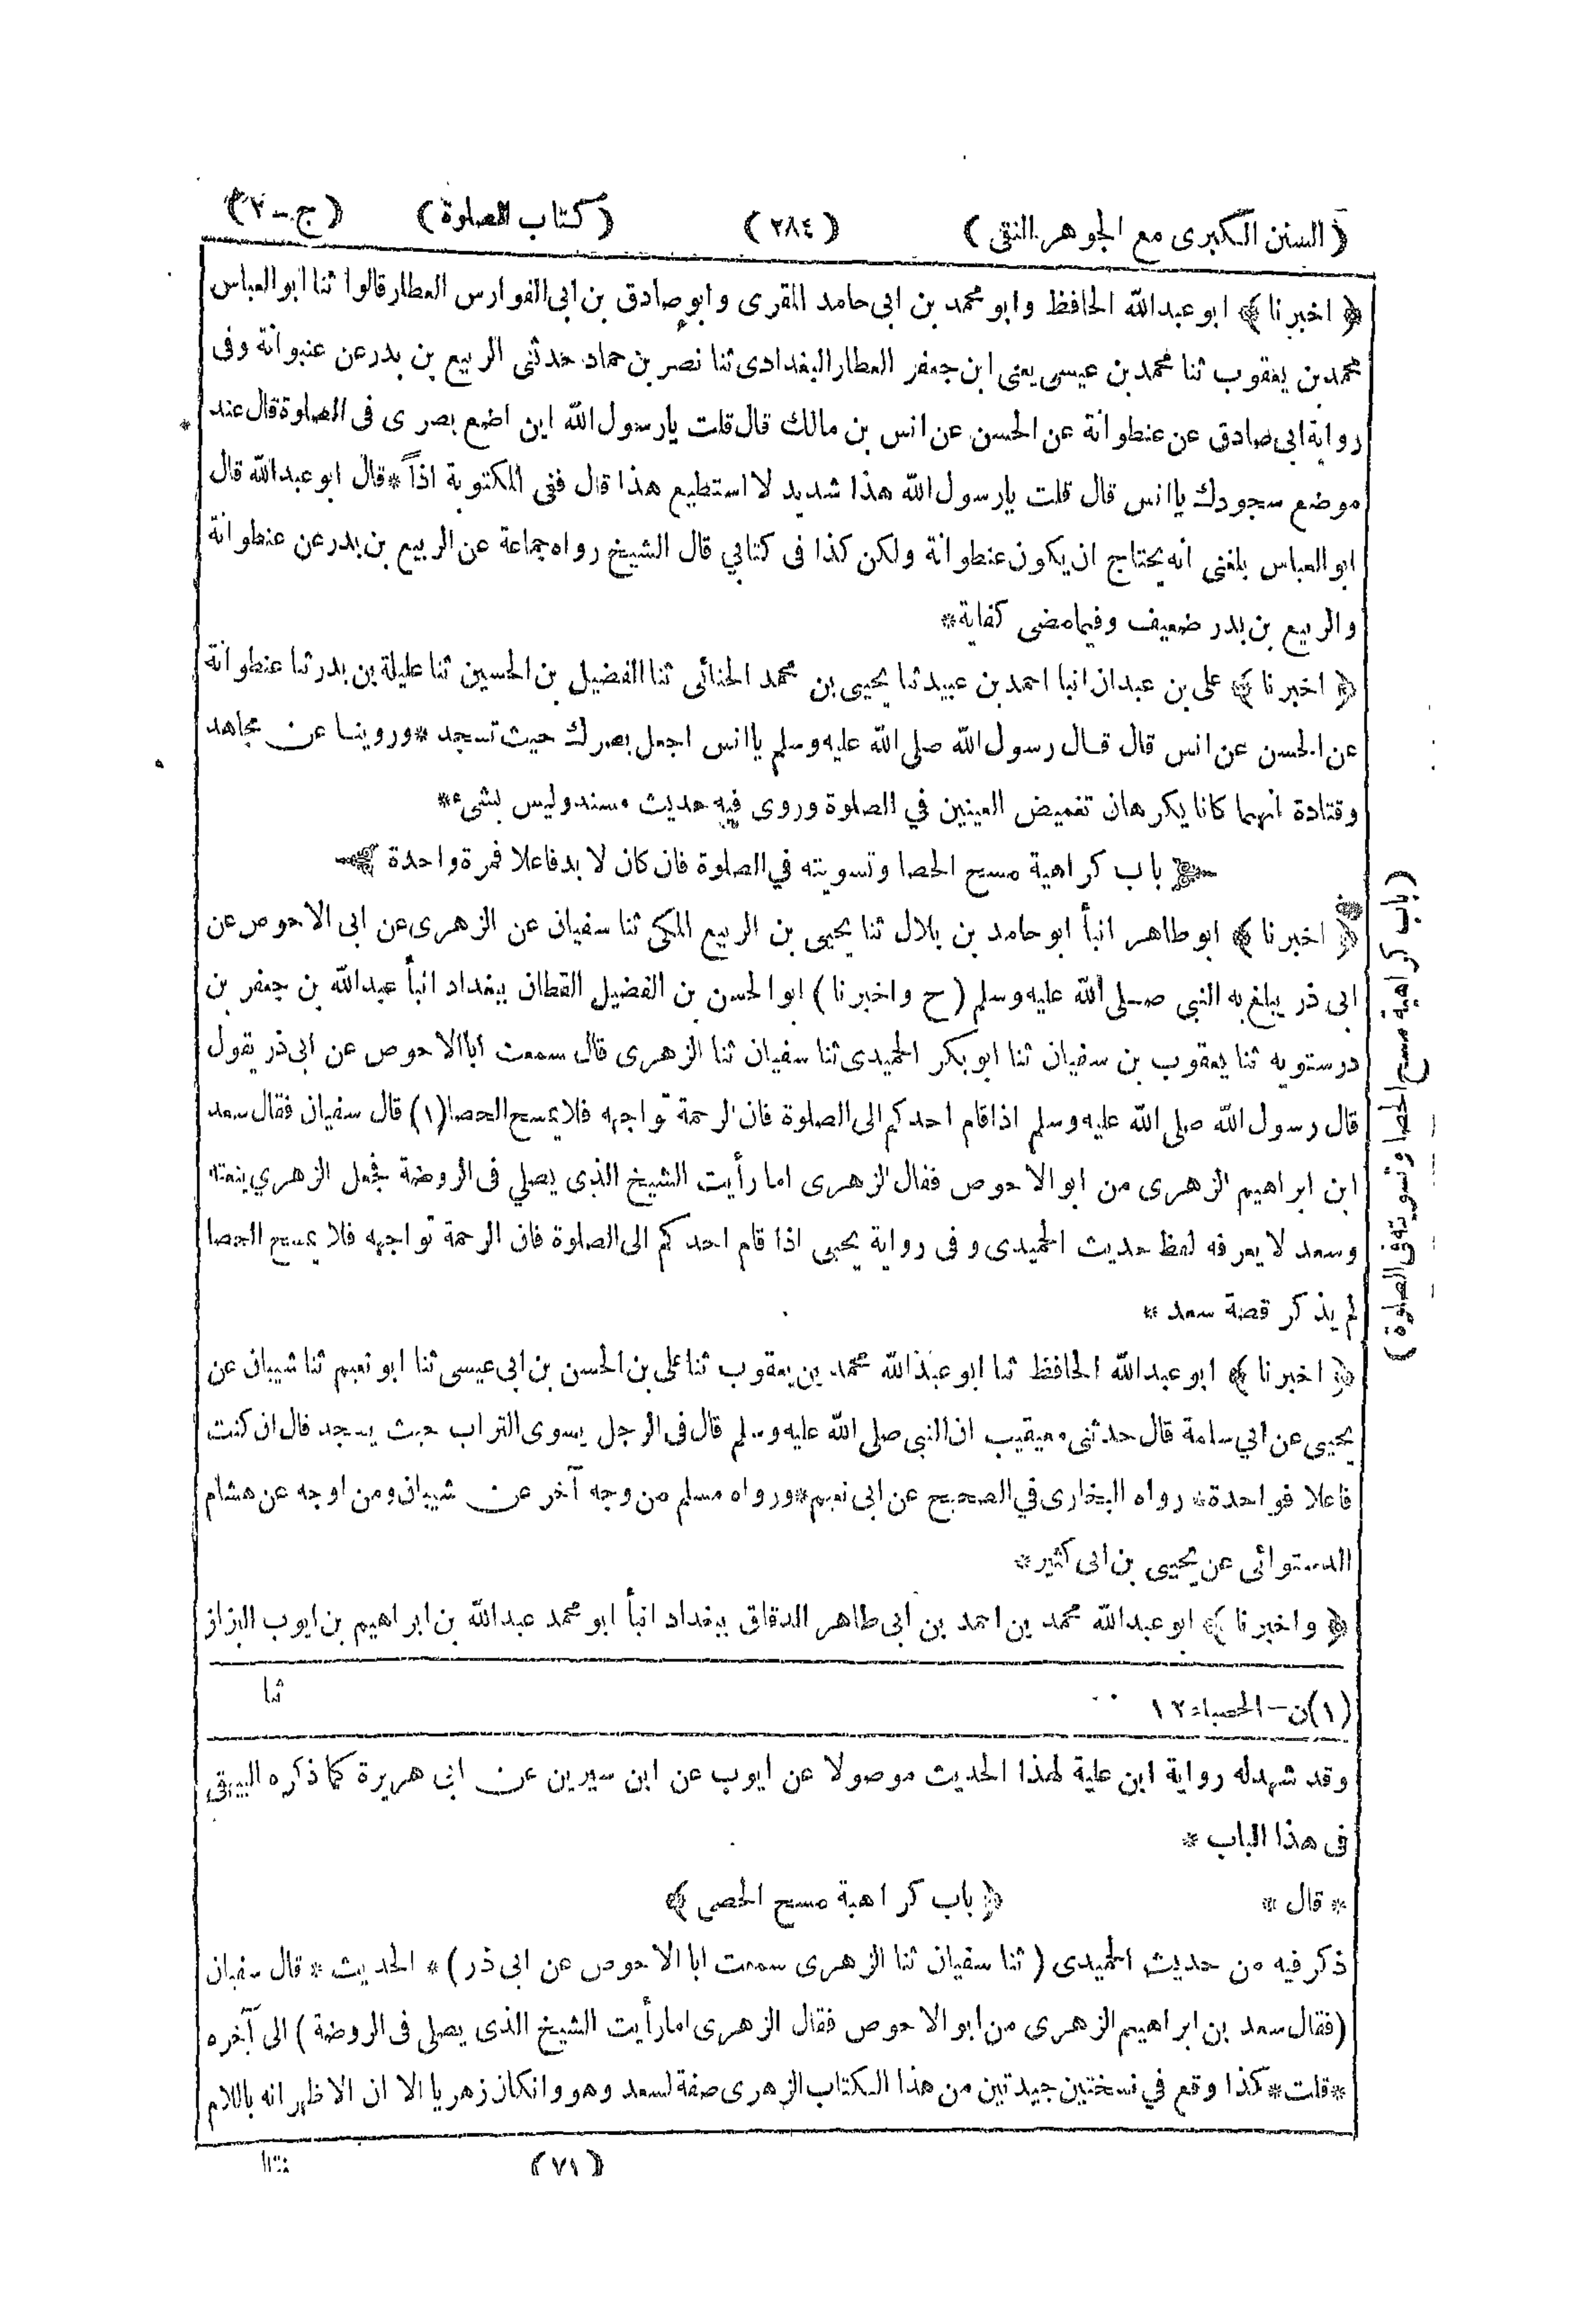 (السنن الكبرى مع الجوهر النقى) (٢٨٤) (كتاب الصلوة) (ج-٢)
﴿اخبرنا﴾ ابو عبدالله الحافظ وابو محمد بن ابى حامد المقرى وابو صادق بن ابى الفوارس العطار قالوا ثنا ابو العباس
محمد بن يعقوب ثنا محمد بن عيسى يعنى ابن جعفر العطار البغدادى ثنا نصر بن حماد حدثنى الربيع بن بدر عن عنبوانة وفى
رواية ابى صادق عن عنطوانة عن الحسن عن انس بن مالك قال قلت يا رسول الله اين اضع بصرى فى الصلوة قال عند
موضع سجودك يا انس قال قلت يا رسول الله هذا شديد لا استطيع هذا قال ففى المكتوبة اذاً * قال ابو عبدالله قال
ابو العباس بلغنى انه يحتاج ان يكون عنطوانة ولكن كذا فى كتابي قال الشيخ رواه جماعة عن الربيع بن بدر عن عنطوانة
والربيع بن بدر ضعيف وفيما مضى كفاية *
﴿اخبرنا﴾ على بن عبدان انبا احمد بن عبيد ثنا يحيى بن محمد الحنائى ثنا الفضيل بن الحسين ثنا عليلة بن بدر ثنا عنطوانة
عن الحسن عن انس قال قال رسول الله صلى الله عليه وسلم يا انس اجعل بصرك حيث تسجد * وروينا عن مجاهد
وقتادة انهما كانا يكرهان تغميض العينين في الصلوة وروى فيه حديث مسند وليس بشىء *
باب كراهية مسح الحصا وتسويته في الصلوة فان كان لا بد فاعلا فمرة واحدة
﴿اخبرنا﴾ ابو طاهر انبأ ابو حامد بن بلال ثنا يحيى بن الربيع المكى ثنا سفيان عن الزهرى عن ابى الاحوص عن
ابى ذر يبلغ به النبي صلى الله عليه وسلم (ح واخبرنا) ابو الحسن بن الفضيل القطان ببغداد انبأ عبدالله بن جعفر بن
درستويه ثنا يعقوب بن سفيان ثنا ابو بكر الحميدى ثنا سفيان ثنا الزهرى قال سمعت ابا الاحوص عن ابى ذر يقول
قال رسول الله صلى الله عليه وسلم اذا قام احدكم الى الصلوة فان الرحمة تواجهه فلا يمسح الحصا (١) قال سفيان فقال سعد
ابن ابراهيم الزهرى من ابو الاحوص فقال الزهرى اما رأيت الشيخ الذى يصلي فى الروضة فجعل الزهري ينعته
وسعد لا يعرفه لفظ حديث الحميدى وفى رواية يحيى اذا قام احدكم الى الصلوة فان الرحمة تواجهه فلا يمسح الحصا
لم يذكر قصة سعد *
﴿اخبرنا﴾ ابو عبدالله الحافظ ثنا ابو عبدالله محمد بن يعقوب ثنا على بن الحسن بن ابى عيسى ثنا ابو نعيم ثنا شيبان عن
يحيى عن ابي سلمة قال حدثنى معيقيب ان النبي صلى الله عليه وسلم قال فى الرجل يسوى التراب حيث يسجد قال ان كنت
فاعلا فواحدة * رواه البخارى في الصحيح عن ابى نعيم * ورواه مسلم من وجه آخر عن شيبان ومن اوجه عن هشام
الدستوائى عن يحيى بن ابى كثير *
﴿واخبرنا﴾ ابو عبدالله محمد بن احمد بن ابى طاهر الدقاق ببغداد انبأ ابو محمد عبدالله بن ابراهيم بن ايوب البزاز
ثنا
(١) ن - الحصباء ١٢
وقد شهد له رواية ابن علية لهذا الحديث موصولا عن ايوب عن ابن سيرين عن ابى هريرة كما ذكره البيهقى
فى هذا الباب *
* قال * ﴿باب كراهية مسح الحصى﴾
ذكر فيه من حديث الحميدى (ثنا سفيان ثنا الزهرى سمعت ابا الاحوص عن ابى ذر) * الحديث * قال سفيان
(فقال سعد بن ابراهيم الزهرى من ابو الاحوص فقال الزهرى اما رأيت الشيخ الذى يصلى فى الروضة) الى آخره
* قلت * كذا وقع في نسختين جيدتين من هذا الكتاب الزهرى صفة لسعد وهو وان كان زهريا الا ان الاظهر انه باللام
(٧١)
(باب كراهية مسح الحصا وتسويته فى الصلوة)